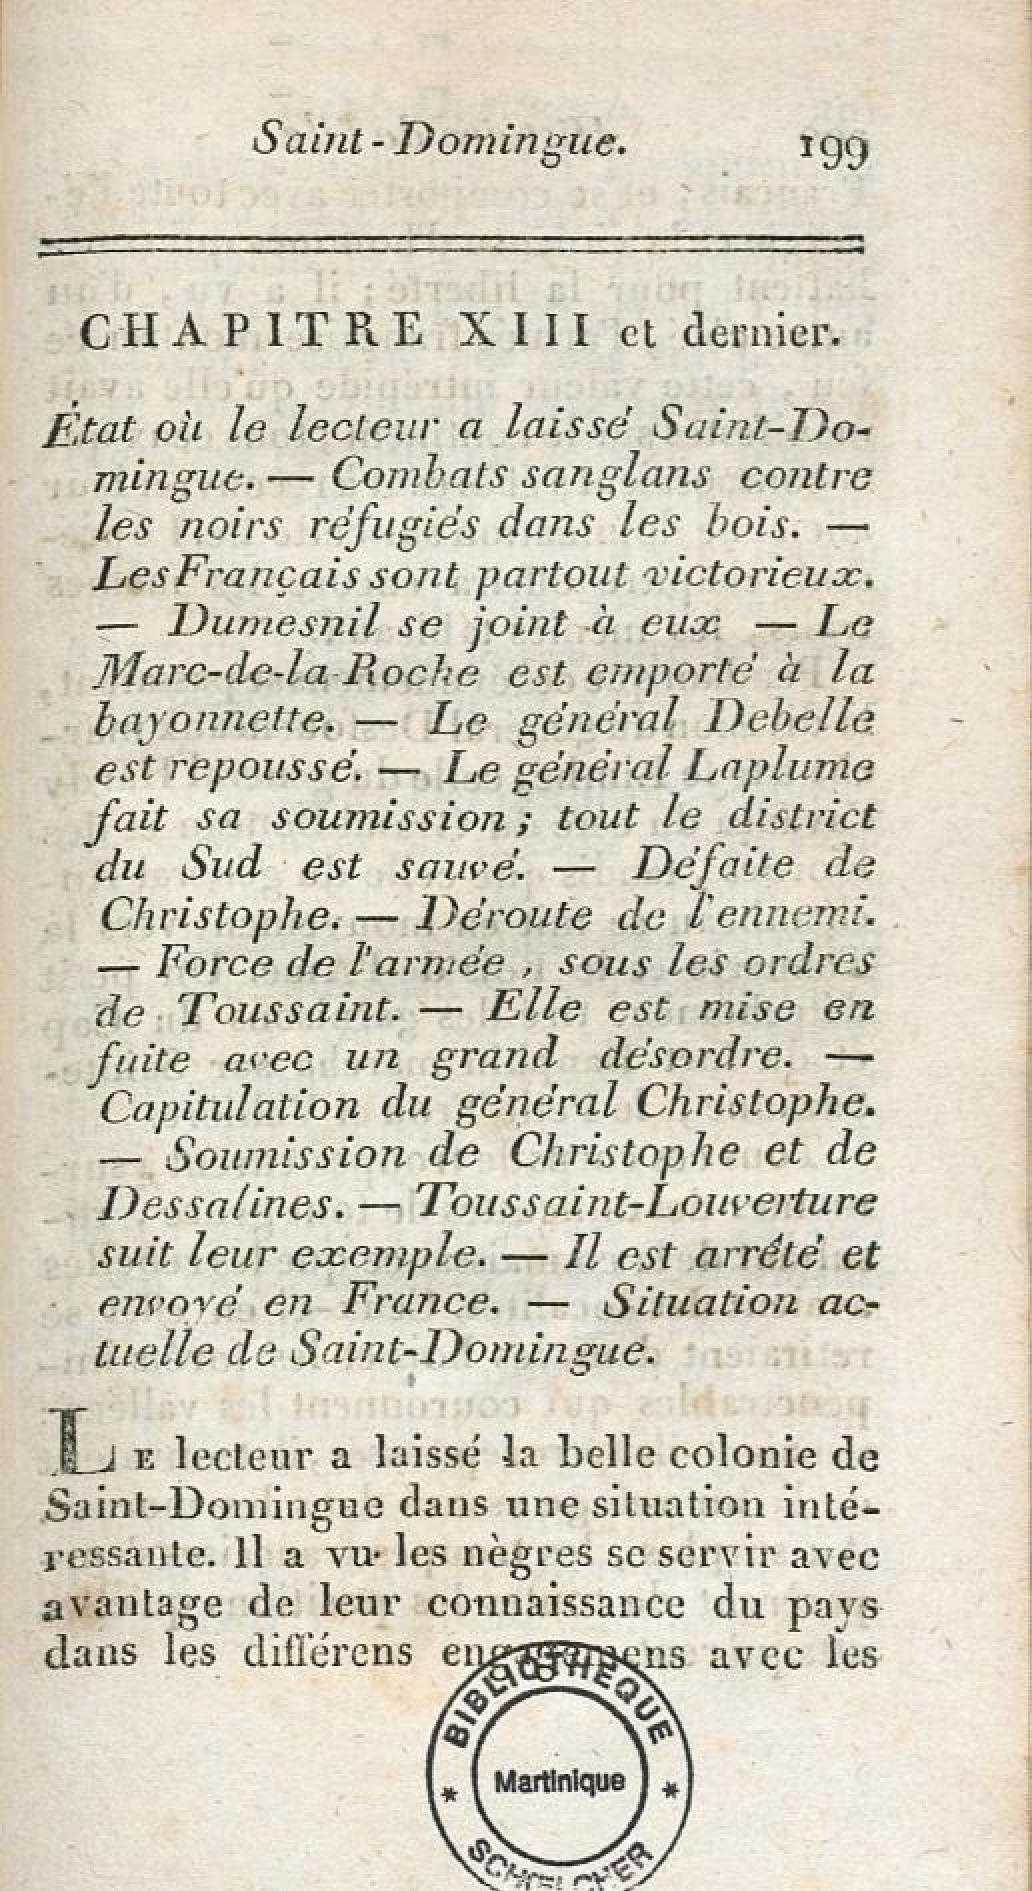 Saint-Domingue. 199
CHAPITRE XIII et dernier.
État où le lecteur a laissé Saint-Do-
mingue. — Combats sanglans contre
les noirs réfugiés dans les bois. —
Les Français sont partout victorieux.
— Dumesnil se joint à eux — Le
Marc-de-la-Roche est emporté à la
bayonnette. — Le général Debelle
est repoussé. — Le général Laplume
fait sa soumission ; tout le district
du Sud est sauvé. — Défaite de
Christophe. — Déroute de l'ennemi.
— Force de l'armée , sous les ordres
de Toussaint. — Elle est mise en
fuite avec un grand désordre. —
Capitulation du général Christophe.
— Soumission de Christophe et de
Dessalines. — Toussaint-Louverture
suit leur exemple. — Il est arrêté et
envoyé en France. — Situation ac-
tuelle de Saint-Domingue.
LE lecteur a laissé la belle colonie de
Saint-Domingue dans une situation inté-
ressante. Il a vu les nègres se servir avec
avantage de leur connaissance du pays
dans les différens engagemens avec les
BIBLIOTHEQUE
Martinique
* *
SCHŒLCHER